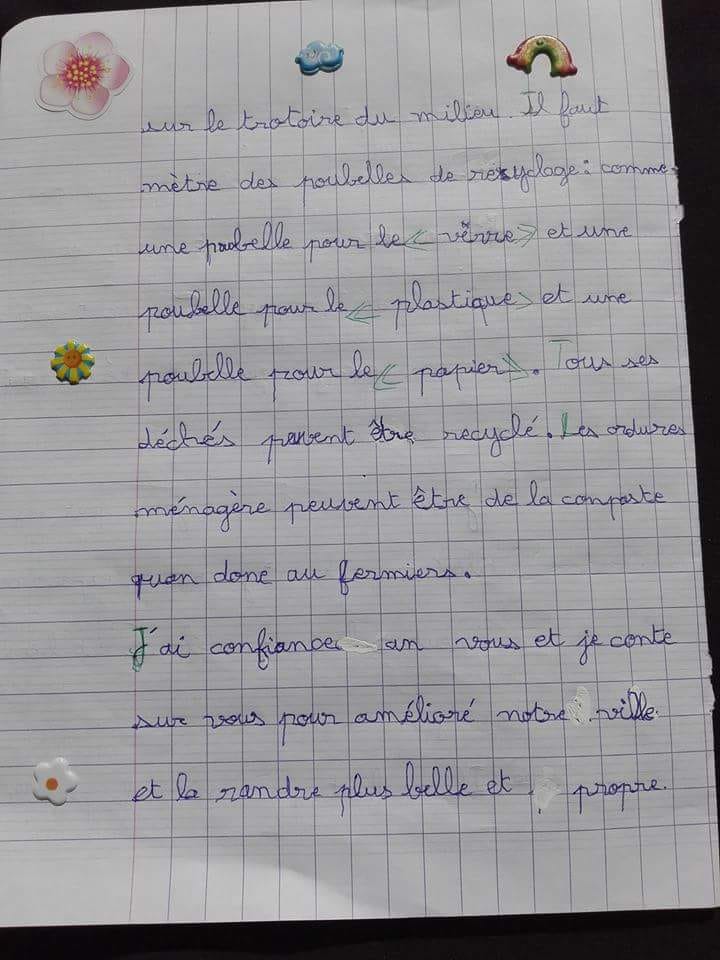 sur le trotoire du milieu. Il faut
mètre des poubelles de resyclage : comme
une poubelle pour le « vêrre » et une
poubelle pour le « plastique » et une
poubelle pour le « papier ». Tous ses
déchés peuvent être recyclé. Les ordures
ménagère peuvent être de la composte
quan done au fermiers.
J'ai confiance an vous et je conte
sur vous pour amélioré notre ville
et la randre plus belle et propre.